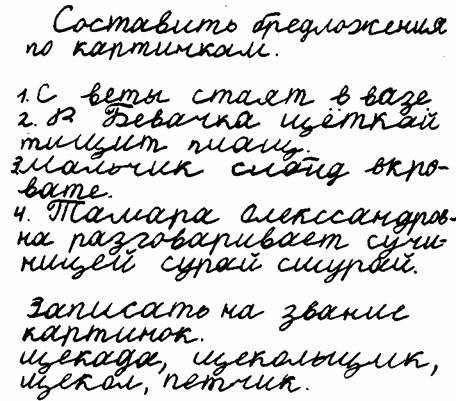 Составить бредложения
по картинкам.
1. С веты стаят в вазе
2. В Бевачка щёткай
тищит плащ.
3 мальчик слайд вкро-
вате.
4. Тамара Олександров-
на разговаривает сучи-
ницей сурай сшурай.
Записать на звание
картинок.
щекада, щекольщик,
щекол, петчик.